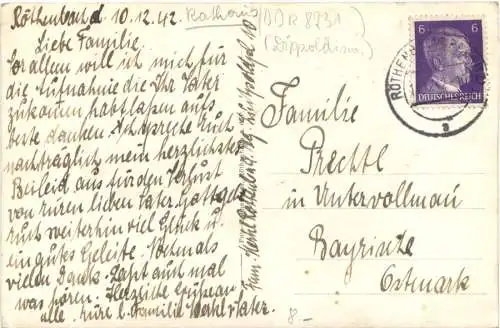 Röthenbach d. 10.12.42
Rathaus DDR 8231
(Dippoldisw.)
Liebe Familie.
Vor allem will ich mich für
die Aufnahme die Ihr Vater
zukommen habt lassen aufs
beste danken. Ich spreche Euch
nachträglich mein herzlichstes
Beileid aus für den Verlust
von Euren lieben Vater. Gott geb
Euch weiterhin viel Glück u.
ein gutes Geleite. Nochmals
vielen Dank. Lasst auch mal
was hören. Herzliche Grüße an
alle. Eure l. Familie Vater.
Röthenbach
6 6
DEUTSCHES REICH
RÖTHENB
a
Familie
Prechtl
in Untervollmau
Bayrische
Ostmark
8.-